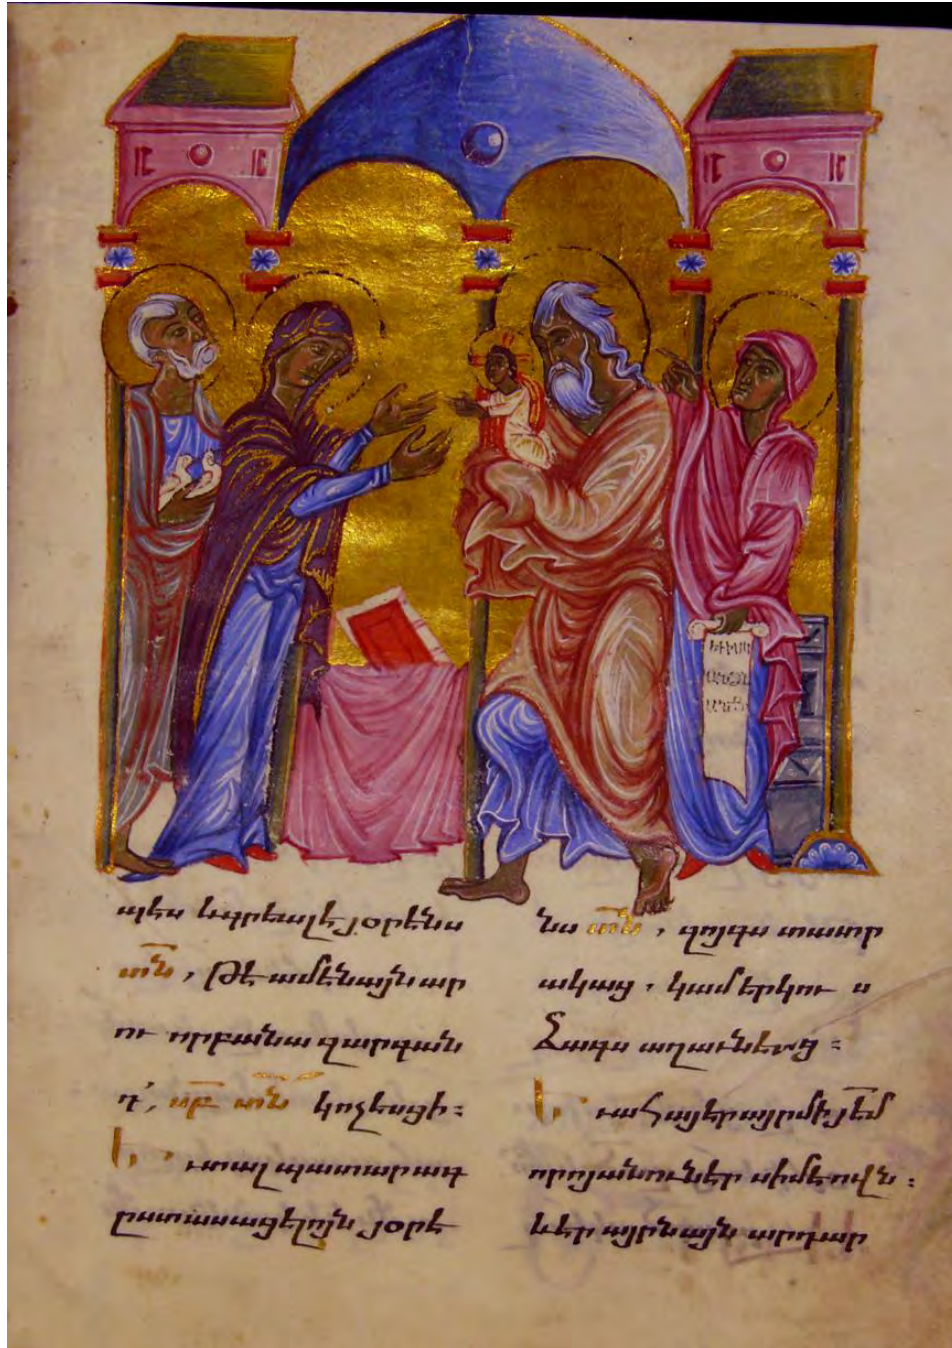 պէս եւ գրեալ է յօրէնս
տն, թէ ամենայն ար
ու որ բանա զարգան
դ՛, սբ տն կոչեսցի։
Եւ տալ պատարագ
ըստ ասացելոյն յօրէ
նս տն, զոյգս տատր
ակաց, կամ երկու ս
ձագս աղաւնեաց։
Եւ ահա էր այր մի յեմ
որոյ անուն էր սիմեովն։
եւ էր այրն այն արդար